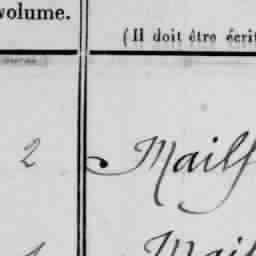 volume.
(Il doit être écrit
2 Mailf
Mail